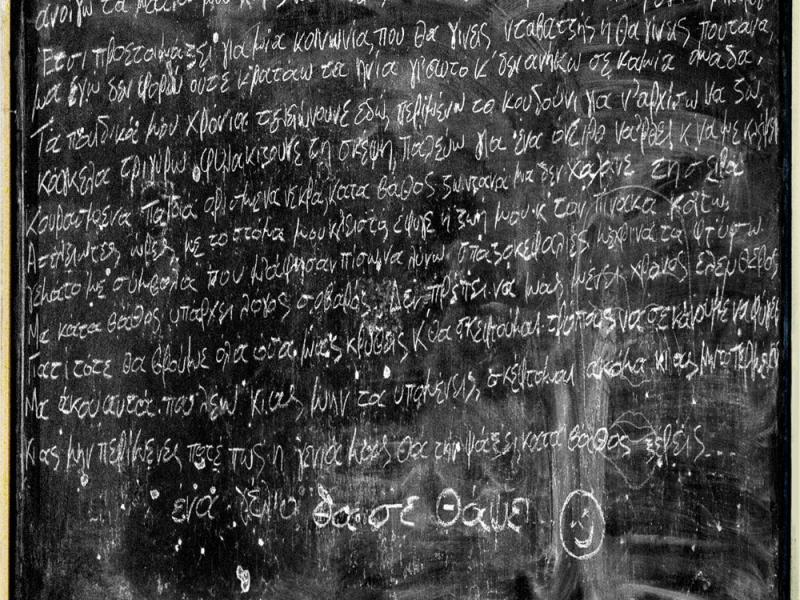 ανοίγω τα μάτια μου
Έτσι προετοιμάζει για μια κοινωνία, που θα γίνεις νταβατζής ή θα γίνεις πουτάνα,
μα εγώ δεν φοράω ούτε κρατάω τα ηνία γι'αυτό κ' δεν ανήκω σε καμία ομάδα,
Τα παιδικά μου χρόνια τελειώνουνε εδώ, περιμένω το κουδούνι για ν'αρχίσω να ζω,
κάγκελα τριγύρω φυλακίζουνε τη σκέψη, παλεύω για ένα όνειρο να'ρθει κ να με κλέψει
κουρασμένα παιδιά ορισμένα νεκρά, κατα βάθος ζωντανά μα δεν χάσανε τη σειρά
Ατελείωτες ώρες, με το στόμα μου κλειστό, έφυγε η ζωή μου κ τον πίνακα κοιτώ,
γεμάτο με σύμβολα που μ'άφησαν πίσω να λύνω σπαζοκεφαλιές μέχρι να τα φτύσω
Μα κατα βάθος υπάρχει λόγος σοβαρός, Δεν πρέπει να μας μένει χρόνος ελεύθερος
Γιατί τότε θα βρούμε όλα αυτά, μας κρύβεις κ θα σκεφτούμε τρόπους να σε κάνουμε να φύγεις
Μα άκου αυτά που λέω κι ας μην τα υπομένεις, σκέφτομαι ακόμα κι ας
κι ας μην περίμενες ποτέ πως η γενιά μας θα την ψάξει κατα βάθος ξέρεις...
ένα γέλιο θα σε θάψει